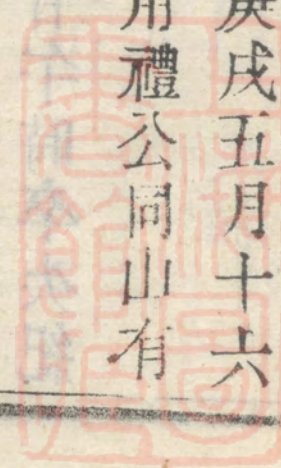 庚戌五月十六
用禮公同山有